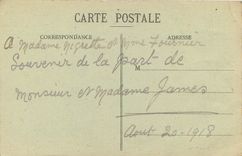 CARTE POSTALE
CORRESPONDANCE
ADRESSE
A Madame et Mme Fournier
Souvenir de la part de
M
Monsieur et Madame James
Aout 20-1918